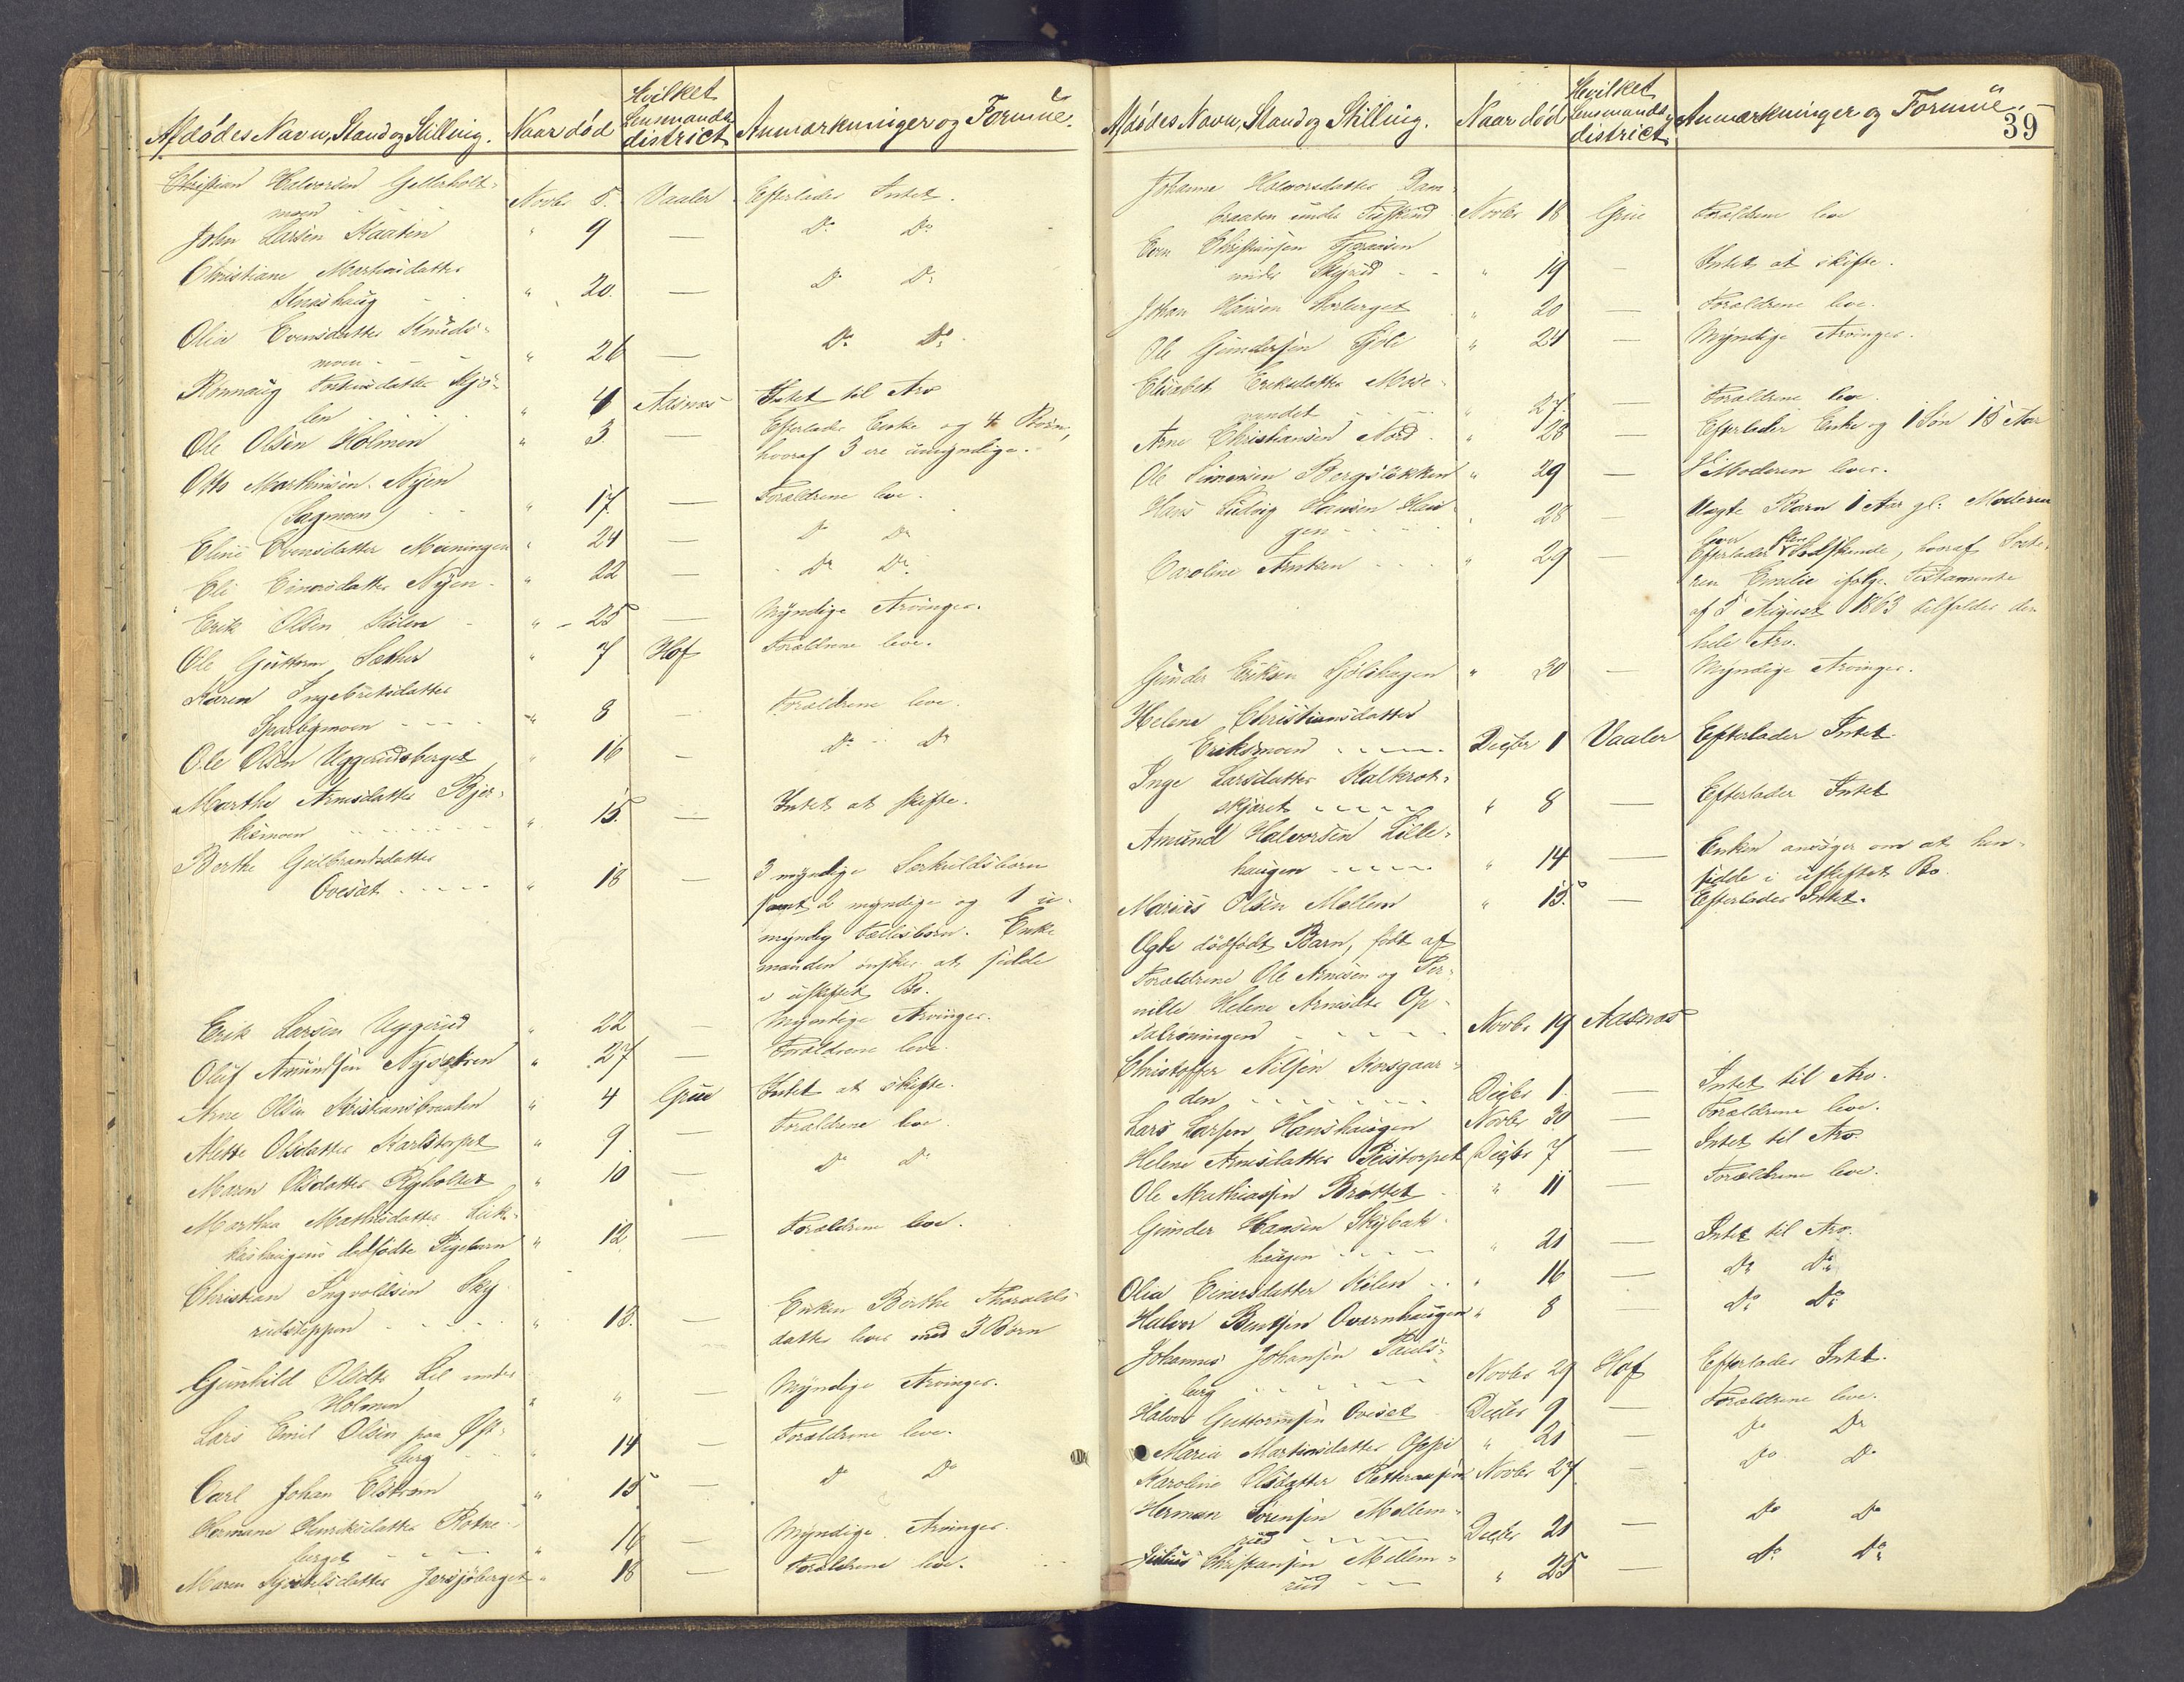 Afdødes Navn, Stand og Stilling. Naar død Hvilket Lensmandsdistrict Anmærkninger og Formue.
Christian Halvorsen Gellerholt-
moen Novbr 5. Vaaler Efterlader Intet.
John Larsen Skaaten " 9 — Do Do
Christiane Martinsdatter
Knashaug " 20. — Do Do
Olia Evensdatter Knuds-
moen " 26 — Do Do
Rønnaug Torkersdatter Kjø-
len " 4 Aasnæs Intet til Arv
Ole Olsen Holmen " 3. — Efterlader Enke og 4 Børn,
hvoraf 3 ere umyndige.
Otto Marthinsen Nyen
(Sagmoen) " 17. — Forældrene leve.
Eline Evensdatter Moeningen " 24 — Do Do
Eli Einarsdatter Nyen " 22 — Do Do
Erik Olsen Kølen " 25 — Myndige Arvinger.
Ole Guttorm Sæther " 7 Hof Forældrene leve.
Karen Ingebretsdatter
Sparbymoen " 8 — Forældrene leve.
Ole Olsen Uggerudsberget " 16 — Do Do
Marthe Arnesdatter Bjer-
kesmoen " 15. — Intet at skifte.
Berthe Gulbrandsdatter
Ovesæt " 18 — 3 myndige Særkuldsbørn
samt 2 myndige og 1 u-
myndig Fællesbørn. Enke
manden ønsker at sidde
i uskiftet Bo.
Erik Larsen Uggerud " 22 — Myndige Arvinger.
Oluf Amundsen Nysætren " 27 — Forældrene leve.
Arne Olsen Kristiansbraaten " 4 Grue Intet at skifte.
Mette Olsdatter Karlstorpet " 9. — Forældrene leve.
Maren Olsdatter Ryholtet " 10 — Do Do
Marthea Mathisdatter Luk-
kashaugens dødfødte Pigebarn " 12 — Forældrene leve.
Christian Ingvoldsen Sky-
rudsteppen " 13. — Enken Berthe Thoralds-
datter lever med 3 Børn
Gunhild Olsdtr Lie under
Holmen " " — Myndige Arvinger.
Lars Emil Olsen paa Øst-
berg " 14 — Forældrene leve.
Carl Johan Elstrøm " 15 — Do Do
Hermane Henriksdatter Rotne-
berget " 16 — Myndige Arvinger.
Maren Kjøstelsdatter Jærsjøberget " 18 — Forældrene leve.
39
Afdødes Navn, Stand og Stilling. Naar død Hvilket Lensmandsdistrict Anmærkninger og Formue.
Johanne Halvorsdatter Dam-
braaten under Risterud Novbr 18 Grue Forældrene leve
Even Christiansen Fjeraasen
under Skyrud " 19 — Intet at skifte.
Johan Hansen Storberget " 20 — Forældrene leve.
Ole Gundersen Kjøle " 21 — Myndige Arvinger.
Elisabet Eriksdatter Mose-
vandet " 27. — Forældrene leve.
Arne Christiansen Nord " 28 — Efterlader Enke og 1 Søn 15 Aar
Ole Simensen Bergsløkken " 29 — Moderen lever.
Hans Ludvig Hansen Hau-
gen " 28 — Uægte Barn 1 Aar gl. Moderen
lever
Caroline Arntzen " 29 — Efterlader flere Sødskende, hvoraf Søste-
ren Emilie ifølge Testamente
af 5 August 1863 tilfalder den
hele Arv.
Gunder Eriksen Kjølshagen " 30 — Myndige Arvinger.
Helene Christiansdatter
Eriksmoen Decbr 1 Vaaler Efterlader Intet.
Inge Larsdatter Kalkrot-
skjæret " 8 — Efterlader Intet
Amund Halvorsen Lille-
haugen " 14 — Enken ansøger om at hen-
sidde i uskiftet Bo.
Marius Olsen Mellem " 15. — Efterlader Intet.
Ægte dødfødt Barn, født af
Forældrene Ole Arnesen og Per-
nille Helene Arnesdtr Op-
salrøningen Novbr 19 Aasnæs
Christoffer Nilsen Korsgaar-
den Decbr 1. — Intet til Arv.
Lars Larsen Hanshaugen Novbr 30 — Forældrene leve.
Helene Arnesdatter Peistorpet Decbr 7 — Intet til Arv.
Ole Mathiassen Brattet " 11 — Forældrene leve.
Gunder Hansen Skybak-
haugen " 21 — Intet til Arv.
Olia Einersdatter Kølen " 16 — Do Do
Halvor Bentsen Overnhaugen " 8 — Do Do
Johannes Johansen Pauls-
berg Novbr 29 Hof Efterlader Intet.
Halvor Guttormsen Ovesæt Decbr 9 — Forældrene leve.
Maria Martinsdatter Oppi " 21 — Do Do
Karoline Olsdatter Rotteraasen Novbr 27. — Do Do
Herman Sørensen Mellem-
rud Decbr 21 — Do Do
Julius Christiansen Mellem-
rud " 25 — Do Do